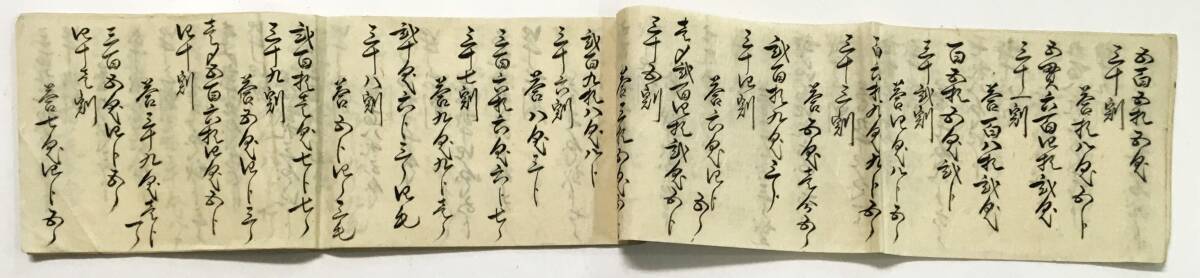 五百五拾五匁
三十割
答拾八匁五分
五貫六百四拾弐匁
三十一割
答百八拾弐匁
百五拾五匁弐分
三十弐割
答四匁八分五り
百六拾九匁九分五り
三十三割
答五匁壱分五り
弐百拾九匁三分
三十四割
答六匁四分五り
壱メ弐百四拾弐匁五分
三十五割
答三拾五匁五分
弐百九拾八匁八分
三十六割
答八匁三分
三百六拾六匁六分七り
三十七割
答九匁九分壱り
弐十匁六分三り四毛
三十八割
答五分四り三毛
弐百拾壱匁七分七り
三十九割
答五匁四分三り
壱メ五百六拾四匁五分
四十割
答三十九匁壱分一り
三百五匁四分五り
四十壱割
答七匁四分五り